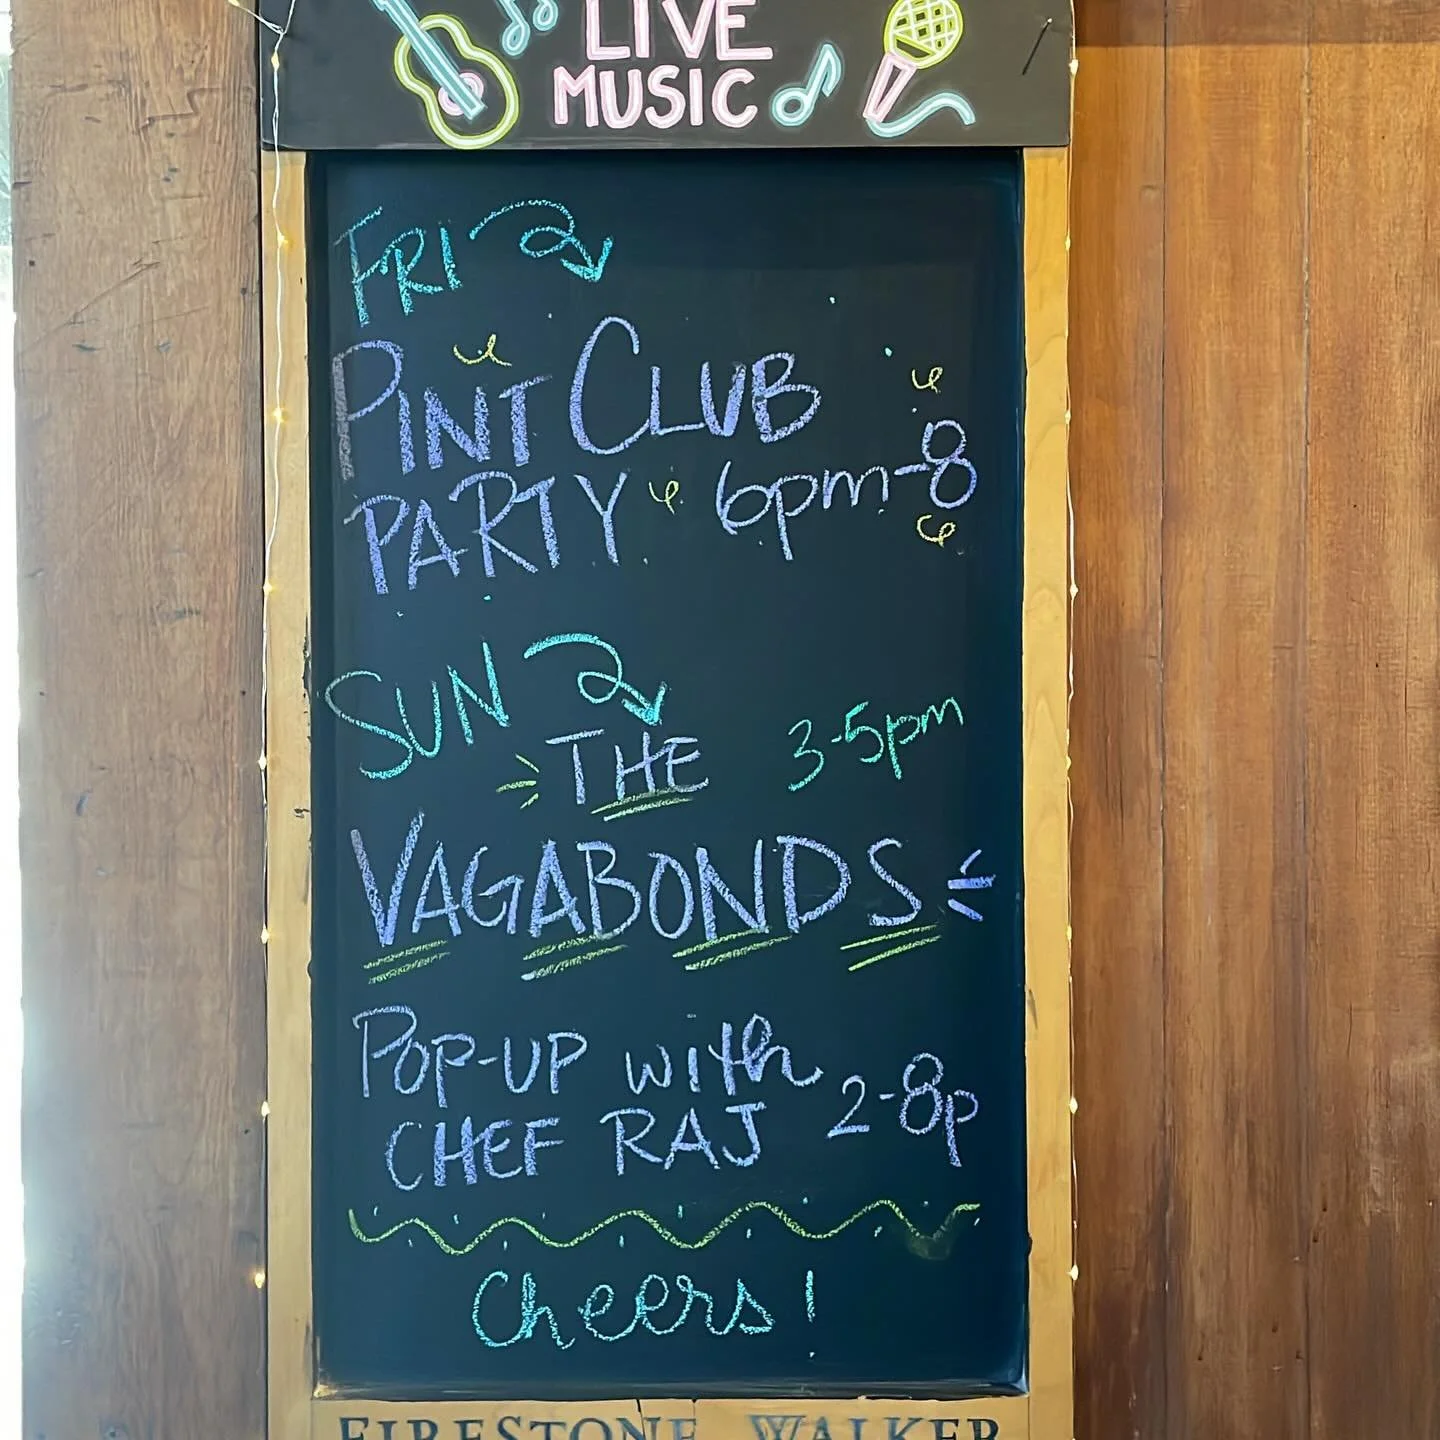 LIVE
MUSIC
FRI
PINT CLUB
PARTY 6pm-8
SUN
THE 3-5pm
VAGABONDS
POP-UP with
CHEF RAJ 2-8p
Cheers!
FIRESTONE WALKER